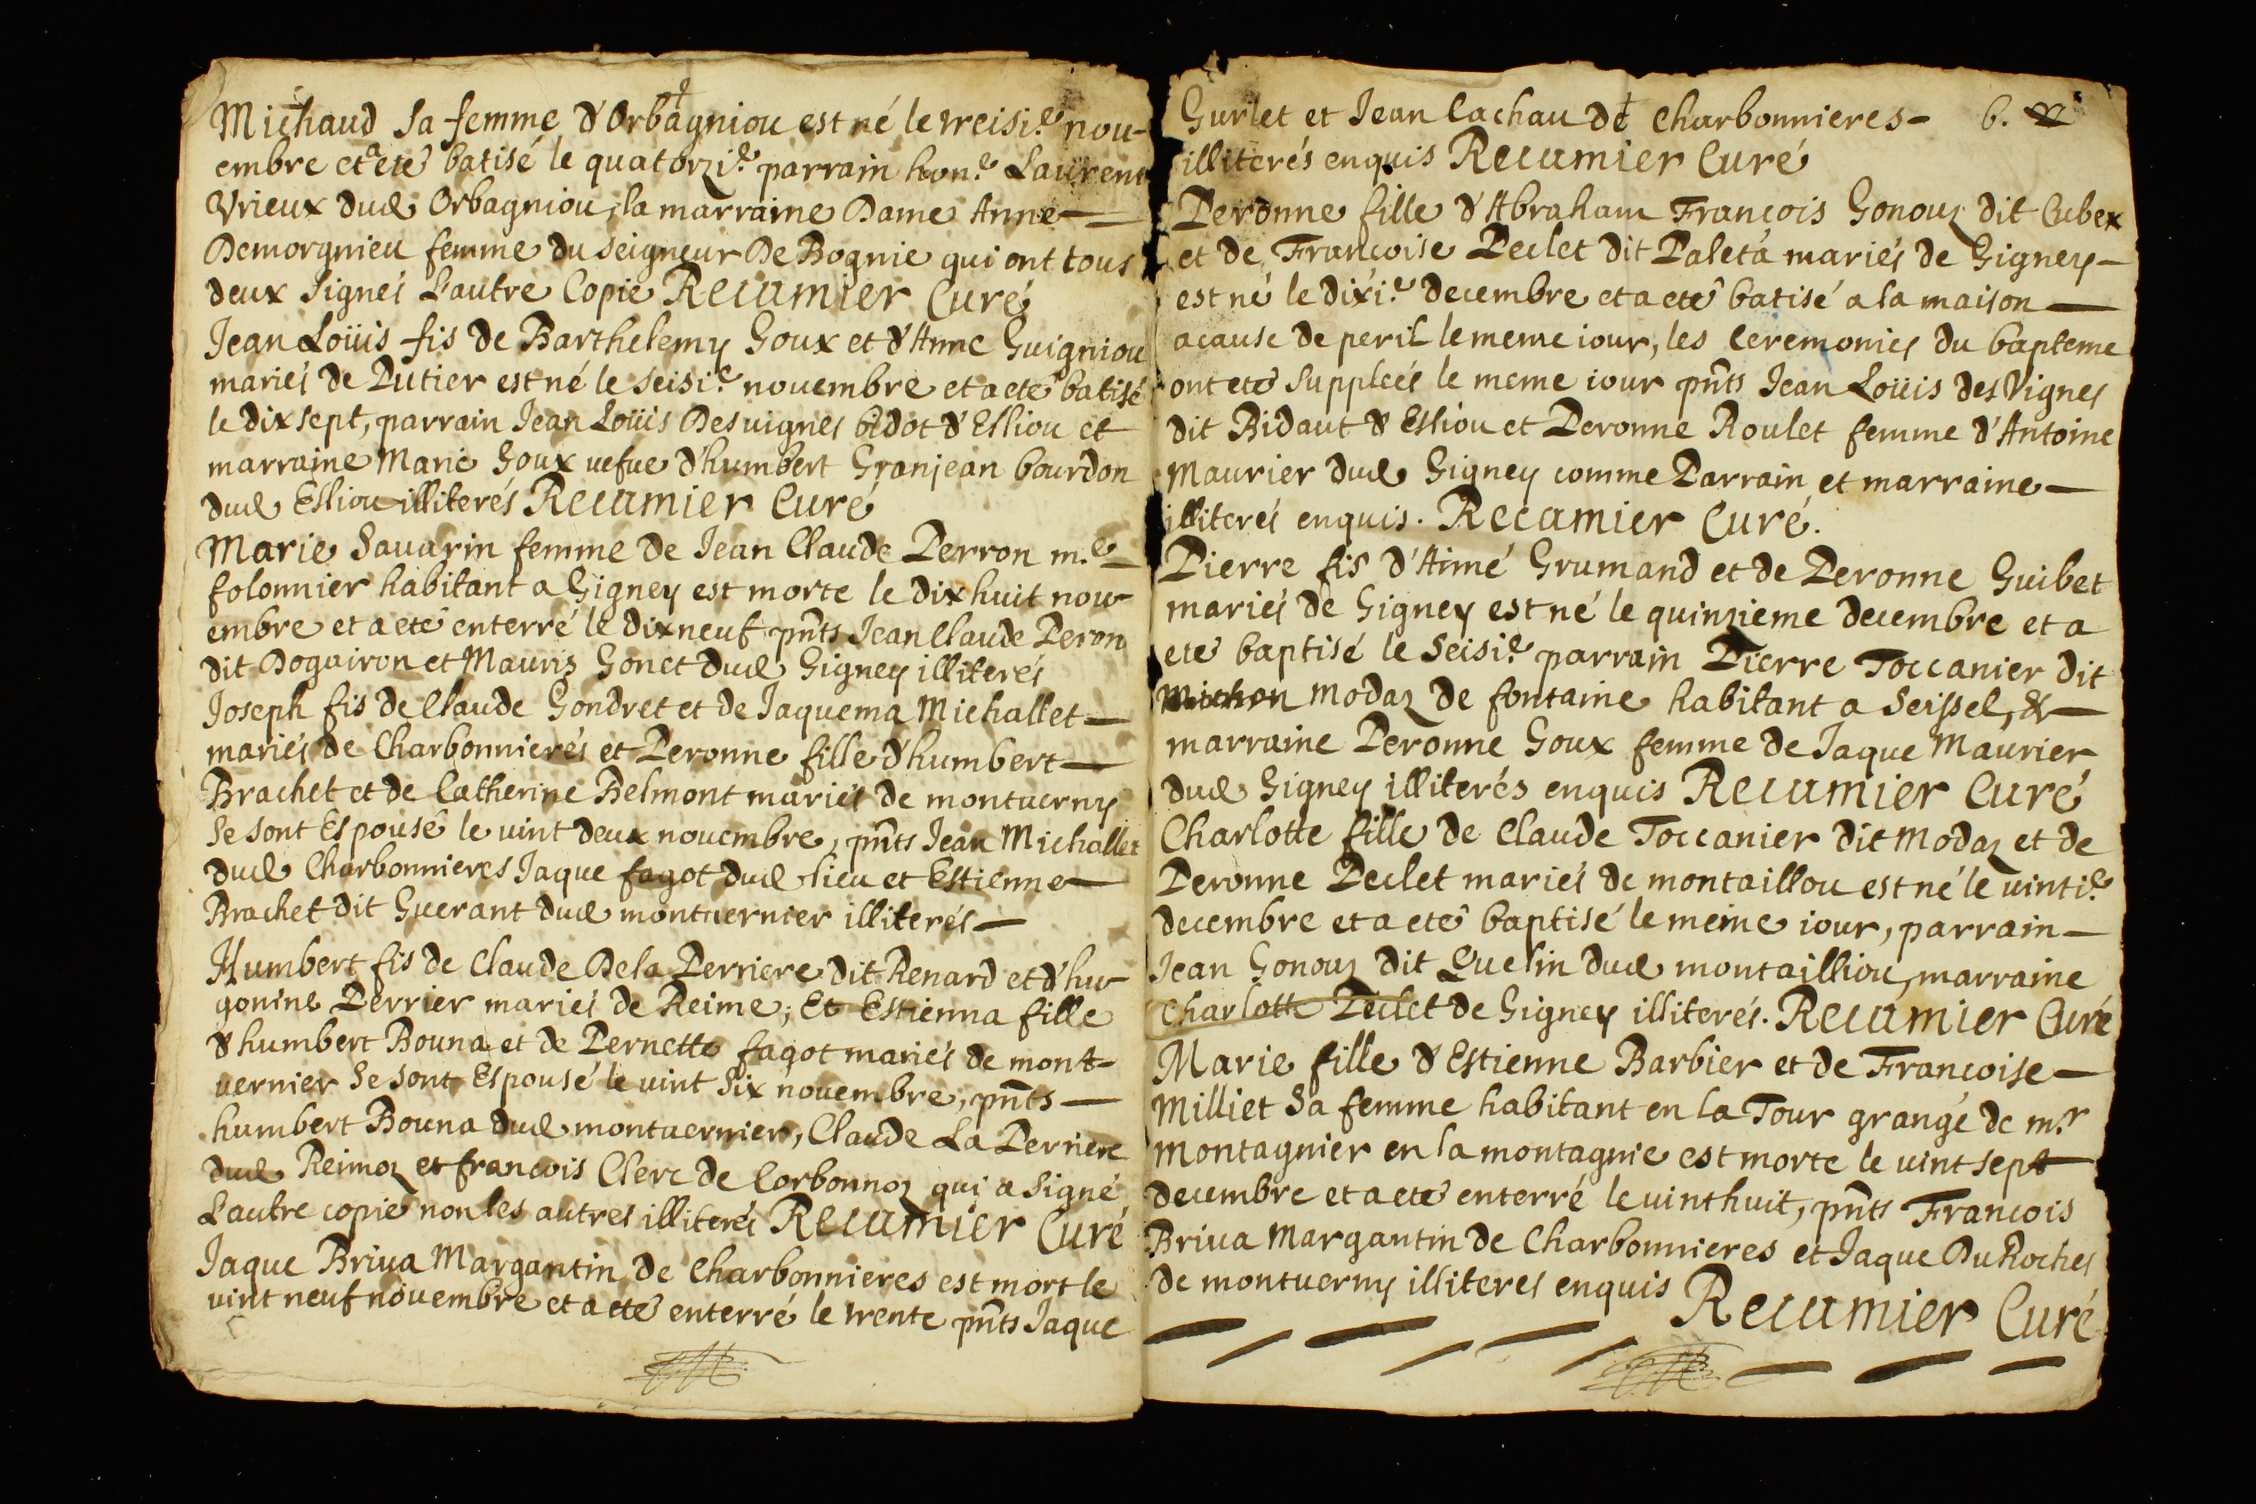 Michaud sa femme d'Orbagniou est né le treisi.e nou-
embre et a eté batisé le quatorzi.e parrain hon.e Laurent
Vrieux dud Orbagniou, la marraine Dame Anne
Demorgnieu femme du seigneur De Bognie qui ont tous
deux signés L'autre Copie Recamier Curé
Jean Loüis fis de Barthelemy Goux et d'Anne Guigniou
mariés de Putier est né le seisi.e nouembre et a eté batisé
le dixsept, parrain Jean Loüis Desuignes bidot d'Elliou et
marraine Marie Goux uefue d'humbert Granjean bourdon
dud Elliou illiterés Recamier Curé
Marie Sauarin femme de Jean Claude Perron m.e
folonnier habitant a Gigney est morte le dix huit nou-
embre et a eté enterré le dixneuf pnts Jean Claude Peron
dit Dogairon et Mauris Gonet dud Gigney illiterés
Joseph fis de Claude Gondret et de Jaquema Michallet
mariés de Charbonnieres et Peronne fille d'humbert
Brachet et de Catherine Belmont mariés de montuerny
se sont Espousé le uint deux nouembre, pnts Jean Michallet
dud Charbonnieres Jaque fagot dud lieu et Estienne
Brachet dit Guerant dud montuernier illiterés
Humbert fis de Claude Dela Perriere dit Renard et d'hu-
gonine Perrier mariés de Reime; Et Estienna fille
d'humbert Bouna et de Pernette fagot mariés de mont-
uernier se sont Espousé le uint six nouembre, pnts
humbert Bouna dud montuernier, Claude La Perriere
dud Reimoz et françois Clerc de Corbonnoz qui a signé
L'autre copie non les autres illiterés Recamier Curé
Jaque Briua Margantin de Charbonnieres est mort le
uint neuf nouembre et a eté enterré le trente pnts Jaque
Gurlet et Jean Cachau dt Charbonnieres 6.
illiterés enquis Recamier Curé
Peronne fille d'Abraham François Gonouz dit Cubex
et de Françoise Peclet dit Paleta mariés de Gigney
est né le dixi.e decembre et a eté batisé a la maison
acause de peril le meme iour, les ceremonies du bapteme
ont eté suppleés le meme iour pnts Jean Loüis des Vignes
dit Bidaut d'Elliou et Peronne Roulet femme d'Antoine
Maurier dud Gigney comme Parrain et marraine
illiterés enquis. Recamier Curé.
Pierre fis d'Aimé Grumand et de Peronne Guibet
mariés de Gigney est né le quinzieme decembre et a
eté baptisé le seisi.e parrain Pierre Toccanier dit
Michon modaz de fontaine habitant a Seissel, &
marraine Peronne Goux femme de Jaque Maurier
dud Gigney illiterés enquis Recamier Curé
Charlotte fille de Claude Toccanier dit modaz et de
Peronne Peclet mariés de montaillou est né le uinti.e
decembre et a eté baptisé le meme iour, parrain
Jean Gonouz dit Quelin dud montailliou, marraine
Charlotte Peclet de Gigney illiterés. Recamier Curé
Marie fille d'Estienne Barbier et de Françoise
Milliet sa femme habitant en la Tour grange de m.r
Montagnier en la montagnie est morte le uint sept
decembre et a eté enterré le uinthuit, pnts François
Briua Margantin de Charbonnieres et Jaque Du Roches
de montuerny illiterés enquis
Recamier Curé